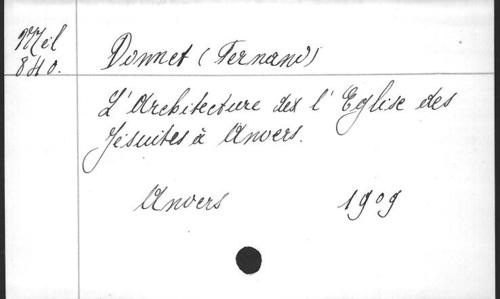 Mél
840.
Donnet (Fernand)
L'Architecture de l'Eglise des
Jésuites à Anvers.
Anvers 1909